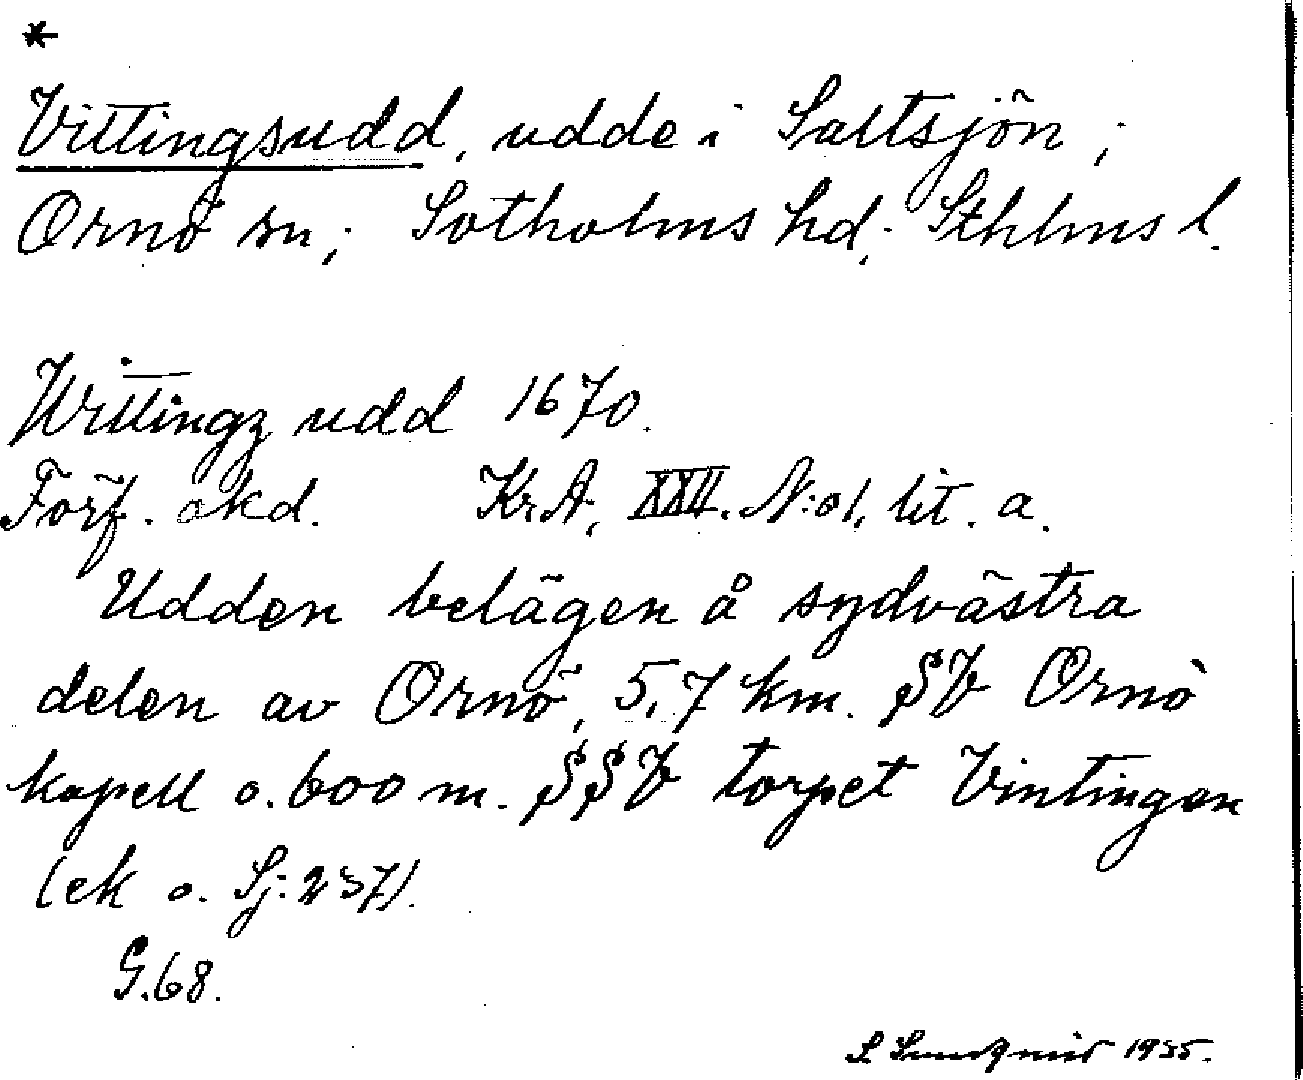 *
Vittingsudd, udde i Saltsjön;
Ornö sn; Sotholms hd; Sthlms l.
Wittingz udd 1670.
Förf. okd. Kr.A. XXII. N:o1, lit. a.
Udden belägen å sydvästra
delen av Ornö, 5,7 km. SV Ornö
kapell o. 600 m. SSV torpet Vintingen
(ek o. Sj: 237).
G.68.
S. Lundqvist 1935.